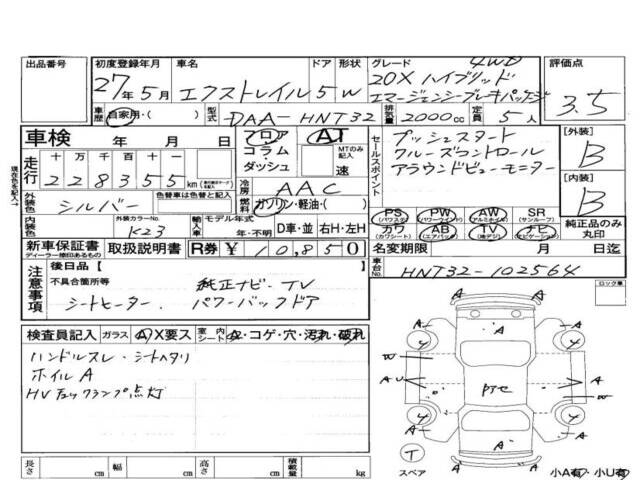 出品番号 初度登録年月 車名 ドア 形状 グレード 4WD 評価点
27年5月 エクストレイル 5 W 20X ハイブリッド
エマージェンシーブレーキパッケージ 3.5
車歴 自家用・( ) 型式 DAA-HNT32 排気量 2000cc 定員 5人
車検 年 月 日 フロア AT セールスポイント プッシュスタート [外装]
コラム MTのみ記入 クルーズコントロール B
走行 十万千百十一 ダッシュ 速 アラウンドビューモニター
228355km 冷房 AAC [内装]
外装色 色替車は色替と記入 シルバー 燃料 ガソリン・軽油・( ) B
PS (パワステ) PW (パワーウィンドウ) AW (アルミホイル) SR (サンルーフ)
内装色 外装カラーNo. K23 輸入車 モデル年式 年・不明 D車・並 右H・左H カワ (カワシート) AB (エアバック) TV (地デジ) ナビ (ナビゲーション) 純正品のみ丸印
新車保証書 ディーラー捺印あるもの 取扱説明書 R券 ¥10,850 名変期限 月 日迄
注意事項 後日品 [ ] 車台No. HNT32-102564
不具合箇所等 純正ナビ・TV ロック車
シートヒーター. パワーバックドア
検査員記入 ガラス A X要ス 室内シート A・コゲ・穴・汚れ・破れ
ハンドルスレ・シートヘタリ
ホイルA
HVチェックランプ点灯
A
4 4
W W
AU A
4 4
A A
A
T
スペア 小A有・小U有
長さ cm 幅 cm 高さ cm 積載量 kg